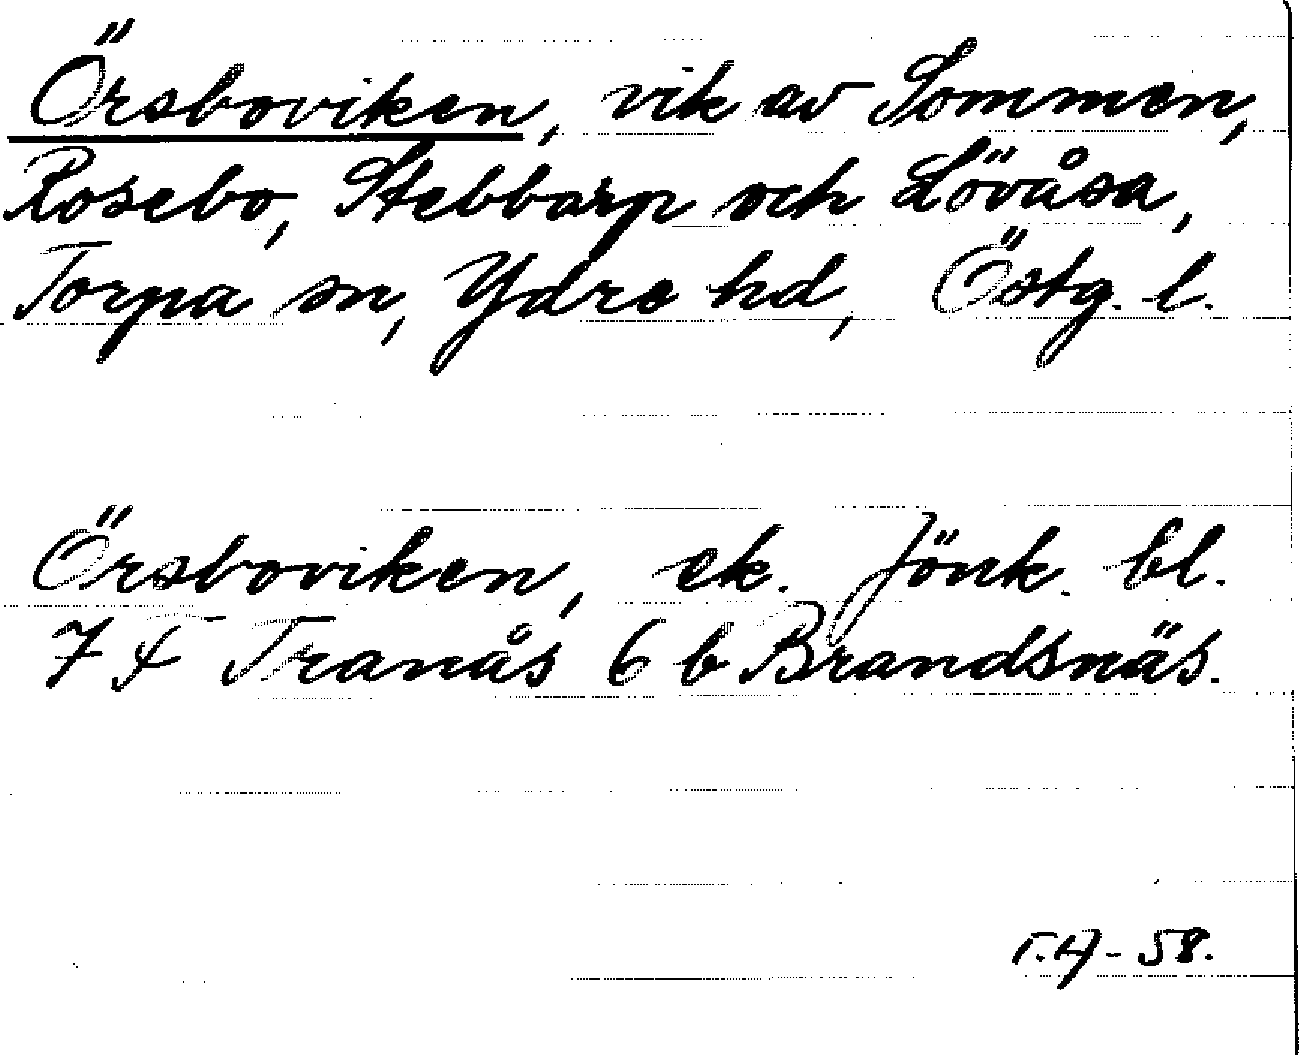 Örsboviken, vik av Sommen,
Rosebo, Stebbarp och Lövåsa,
Torpa sn, Ydre hd, Östg. l.
Örsboviken, ek. Jönk. bl.
7 F Tranås 6 b Brandsnäs.
T.H-58.